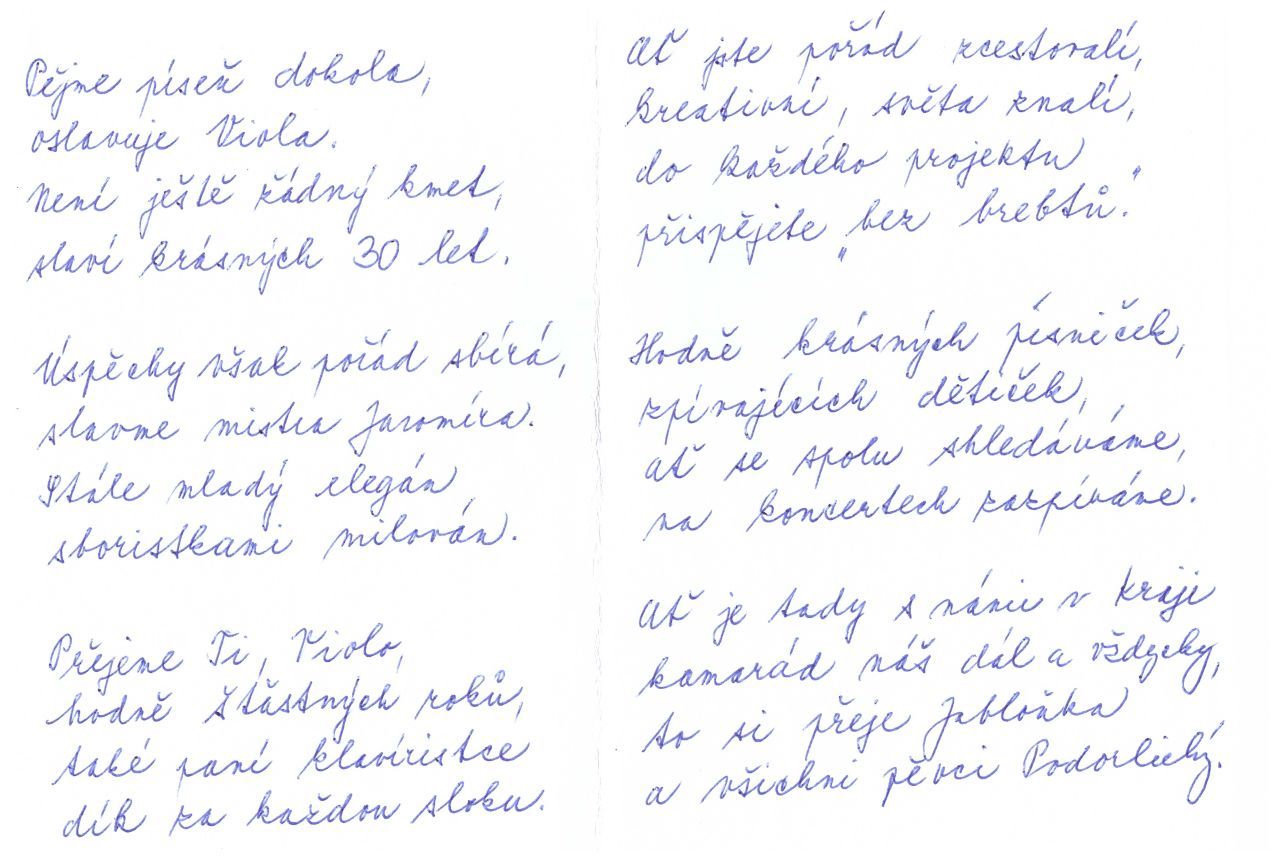 Pějme píseň dokola,
oslavuje Viola.
Není ještě žádný kmet,
slaví krásných 30 let.
Úspěchy však pořád sbírá,
slavme mistra Jaromíra.
Stále mladý elegán,
sboristkami milován.
Přejeme Ti, Violo,
hodně šťastných roků,
také paní klavíristce
dík za každou sloku.
Ať jste pořád zcestovalí,
kreativní, světa znalí,
do každého projektu
přispějete „bez brebtů.“
Hodně krásných písniček,
zpívajících dětiček,
ať se spolu shledáváme,
na koncertech zazpíváme.
Ať je tady s námi v kraji
kamarád náš dál a vždycky,
to si přeje Jabloňka
a všichni pěvci Podorlický.